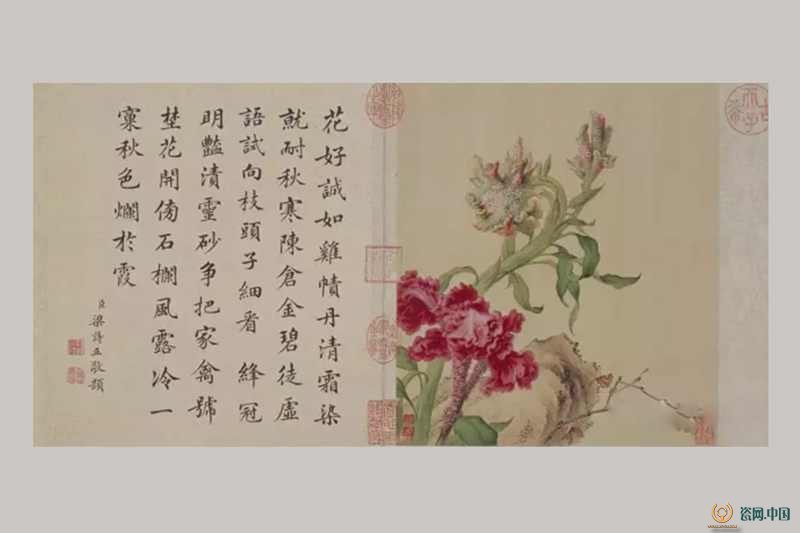 花好誠如雞幘丹清霜染
就耐秋寒陳倉金碧徒虛
語試向枝頭子細看 絳冠
明豔漬靈砂爭把家禽號
埜花開傍石欄風露冷一
窠秋色爛於霞
臣梁詩正敬題
天子
瓷网.中国